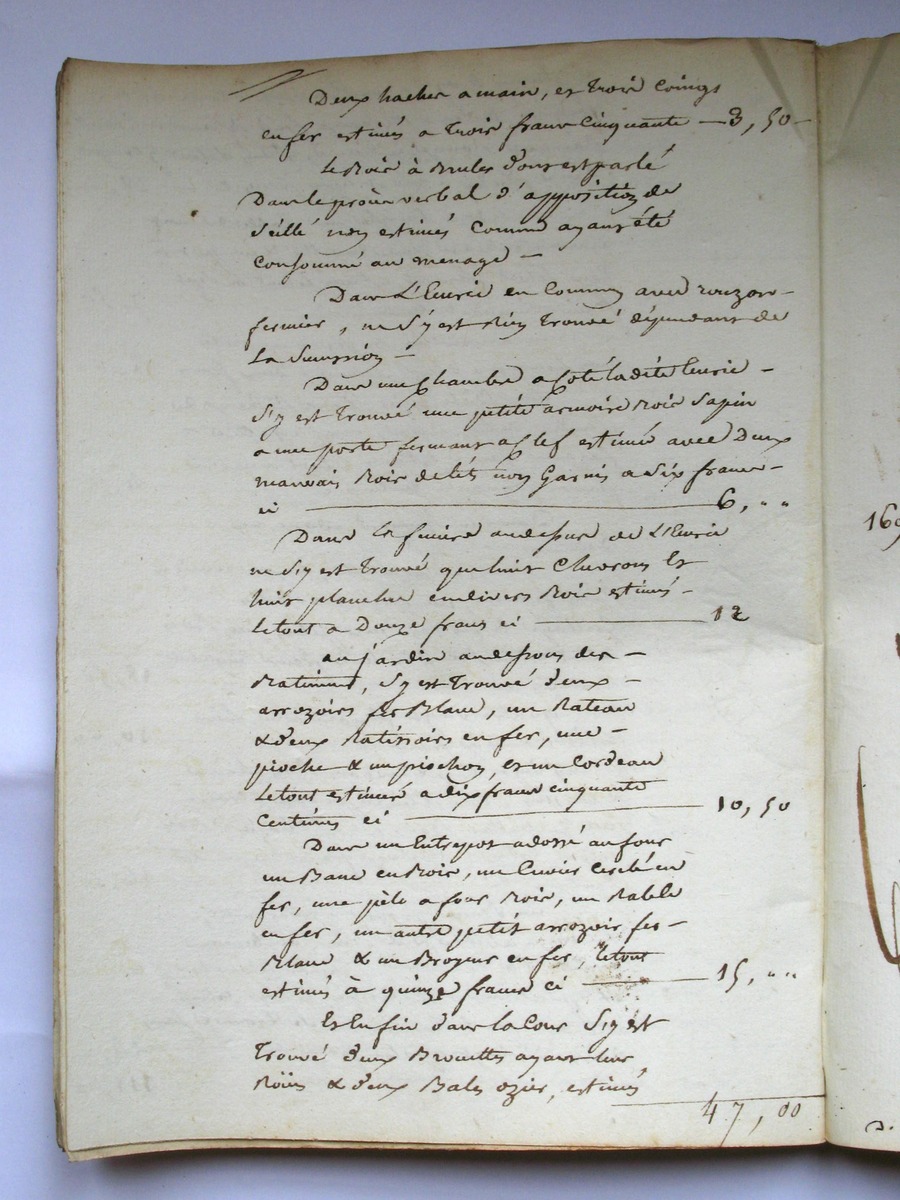 Deux haches a main, et trois coings
en fer estimés a trois francs cinquante — 3, 50 —
Le Bois à Bruler dont est parlé
Dans le procès verbal d'apposition de
scéllé non estimés comme ayant été
consommé au menage —
Dans L'Ecurie en commun avec
fermier, ne s'y est Rien trouvé dépendant de
La Succession —
Dans une chambre a coté ladite Ecurie —
s'y est trouvé une petite armoire Bois sapin
a une porte fermant a clef estimée avec Deux
mauvais Bois de lits non Garnis a six francs —
ci — 6, " "
Dans la feniere au dessus de L'Ecurie
ne s'y est trouvé que huit chevrons Et
huit planches en divers Bois estimés —
Le tout a Douze francs ci — 12
au jardin au dessous des —
Batiments, s'y est trouvé deux —
arrozoirs fer Blanc, un Rateau
& deux Ratissoirs en fer, une —
pioche & un piochon, et un Cordeau
Le tout estimés a dix francs cinquante
Centimes ci — 10, 50
Dans un Entrepot adossé au four
un Banc en Bois, un Cuvier cerclé en
fer, une pèle a four Bois, un Rable
en fer, un autre petit arrozoir fer —
Blanc & un en fer, Le tout
estimés à quinze francs ci — 15, " "
Et Enfin dans la Cour s'y est
trouvé deux Brouettes ayant leur
Roües & deux Bales ozier, estimés
47, 00
169